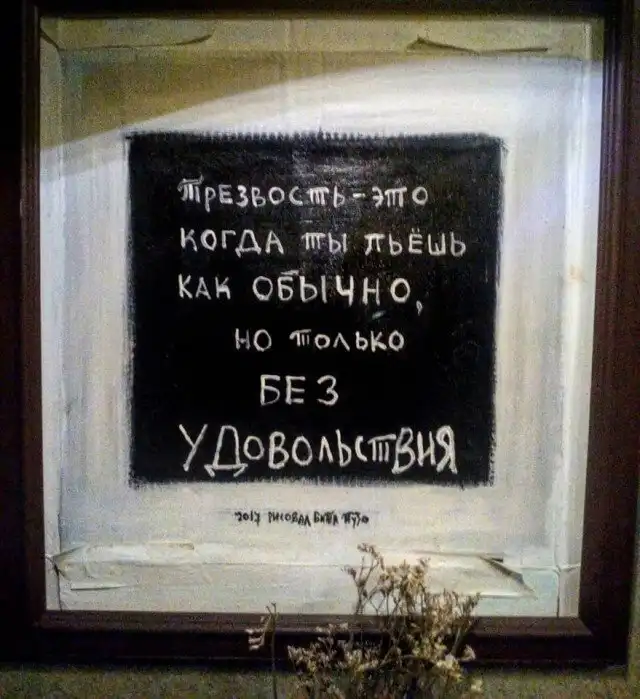 ТРЕЗВОСТЬ-ЭТО
КОГДА ТЫ ПЬЁШЬ
КАК ОБЫЧНО,
НО ТОЛЬКО
БЕЗ
УДОВОЛЬСТВИЯ
2017 РИСОВАЛ